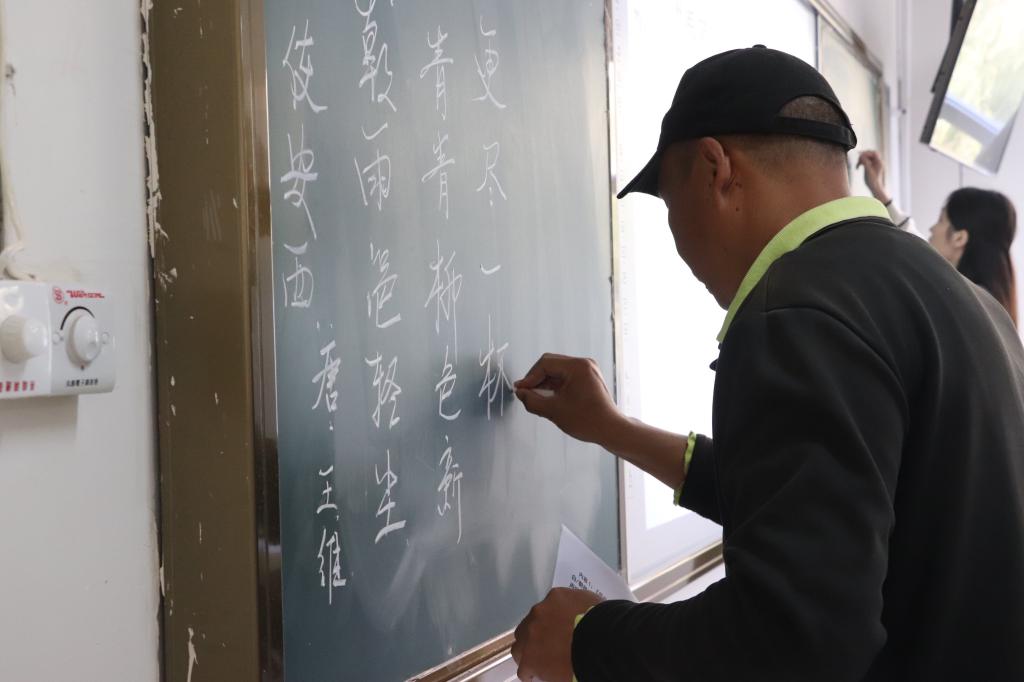 使安西
唐·王维
朝雨浥轻尘
青青柳色新
更尽一杯